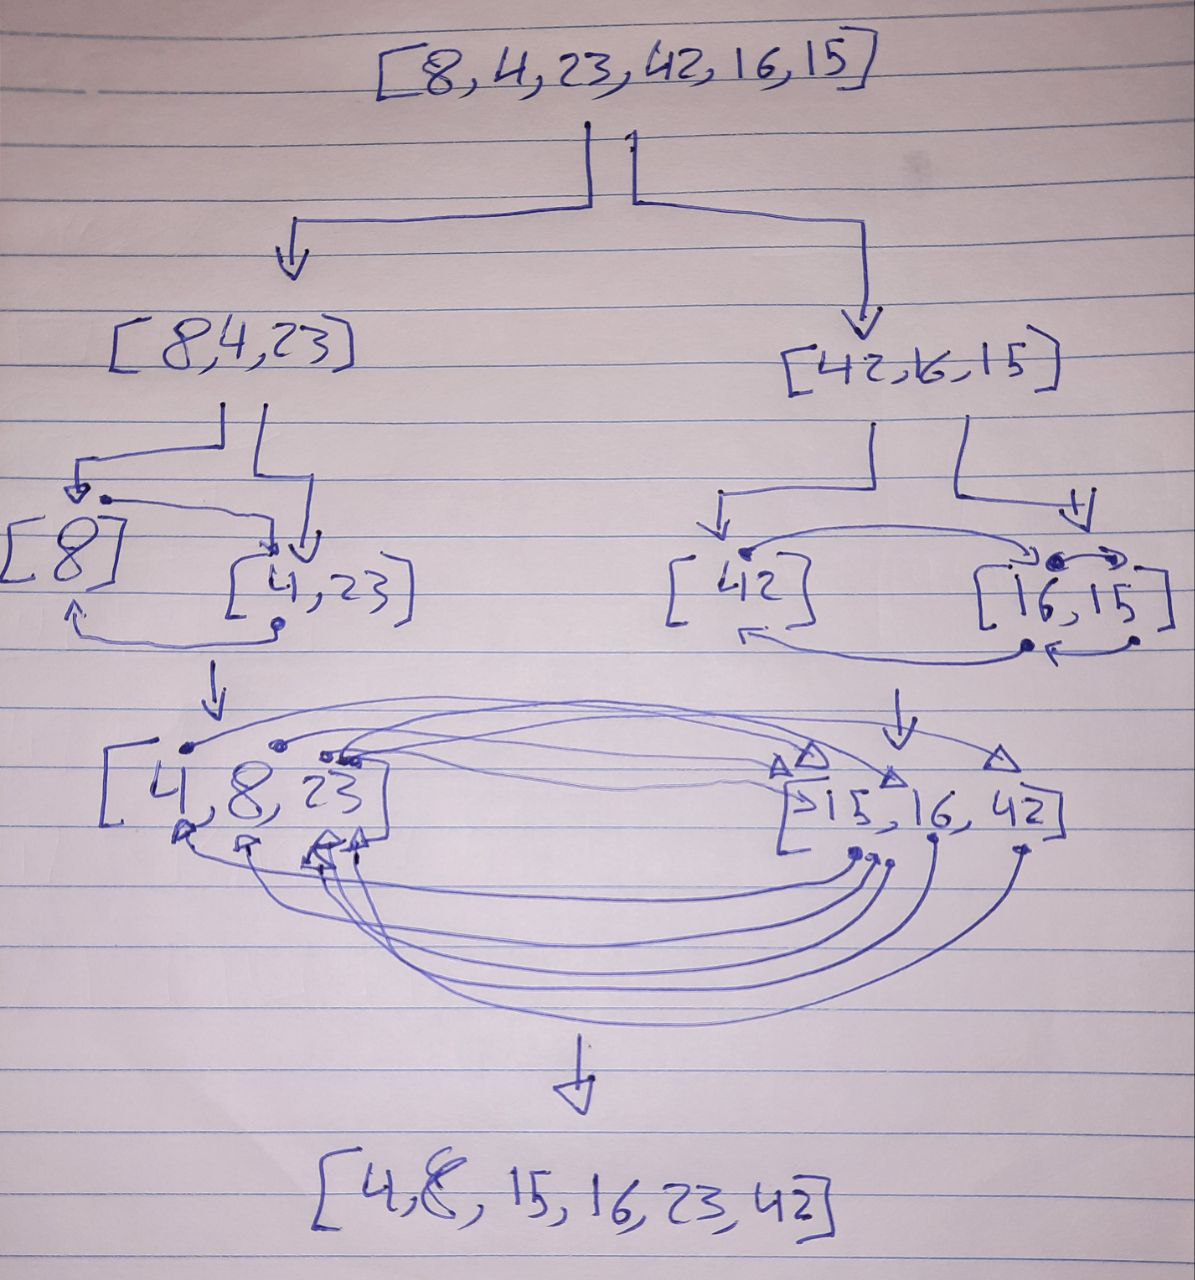 [8,4,23,42,16,15]
[8,4,23] [42,16,15]
[8] [4,23] [42] [16,15]
[4,8,23] [15,16,42]
[4,8,15,16,23,42]